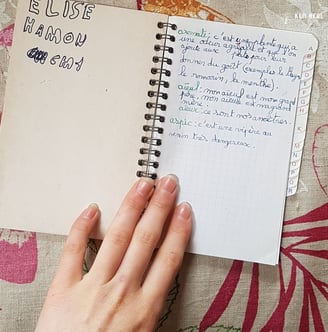 ELISE
HAMON
CM1
aromate: c'est une plante qui a
une odeur agréable et qu'on
ajoute aux plats pour leur
donner du goût (exemples le thym
le romarin, la menthe).
aïeul: mon aïeul est mon grand
père, mon aïeule est ma grand
mère.
aïeux: ce sont nos ancêtres.
aspic: c'est une vipère au
venin très dangereux.